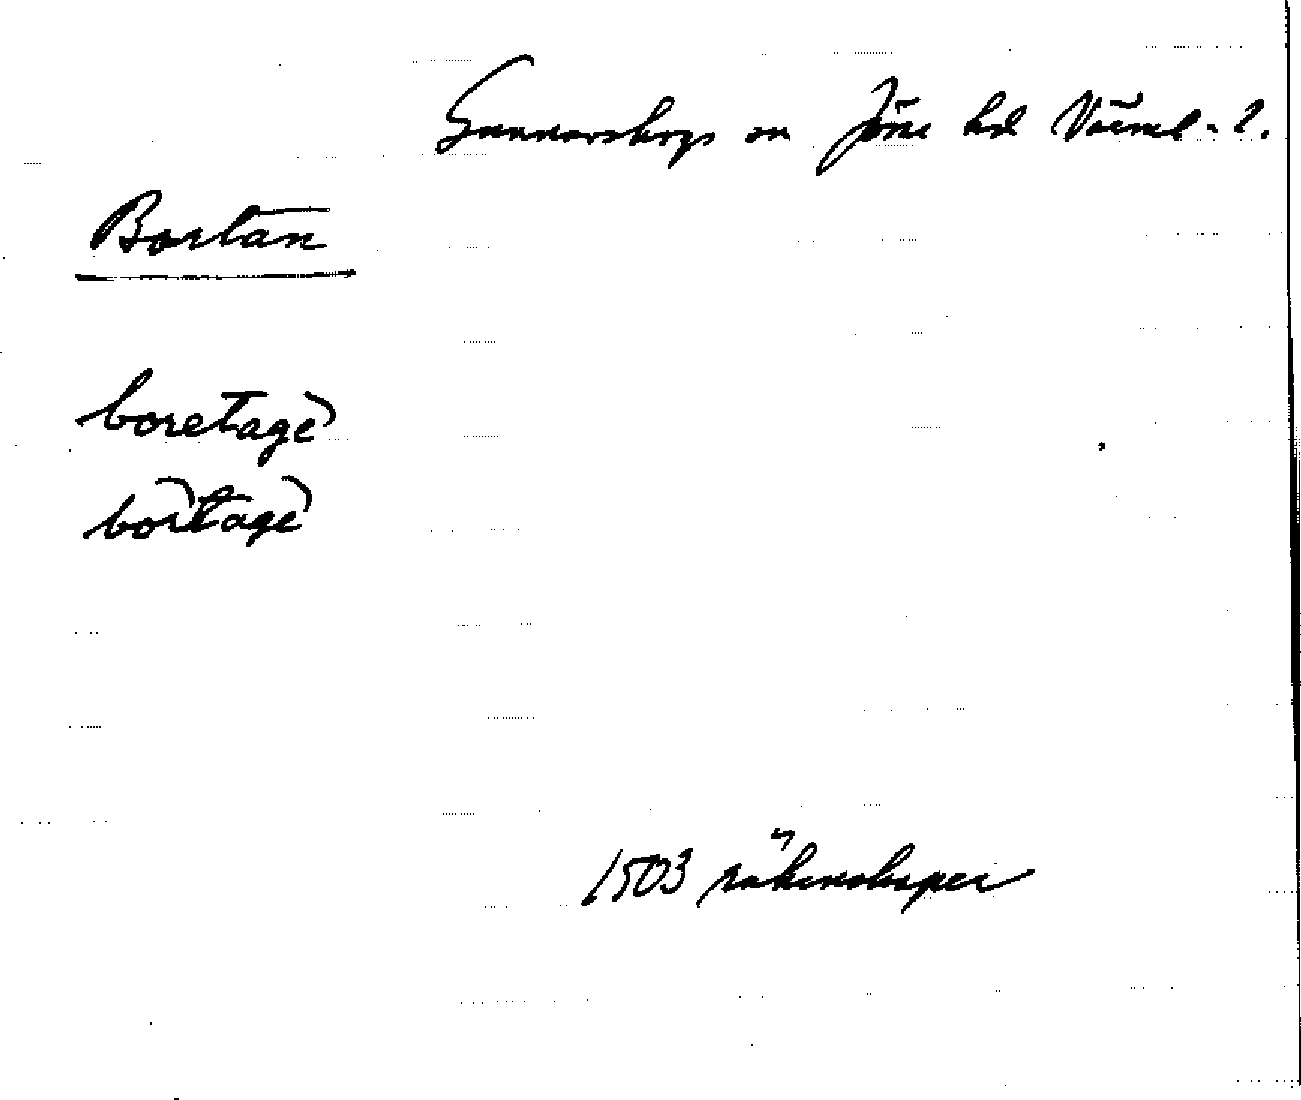 Gunnarskogs sn Jösse hd Värml. l.
Bortan
boretagē
bortagē
1503 räkenskaper